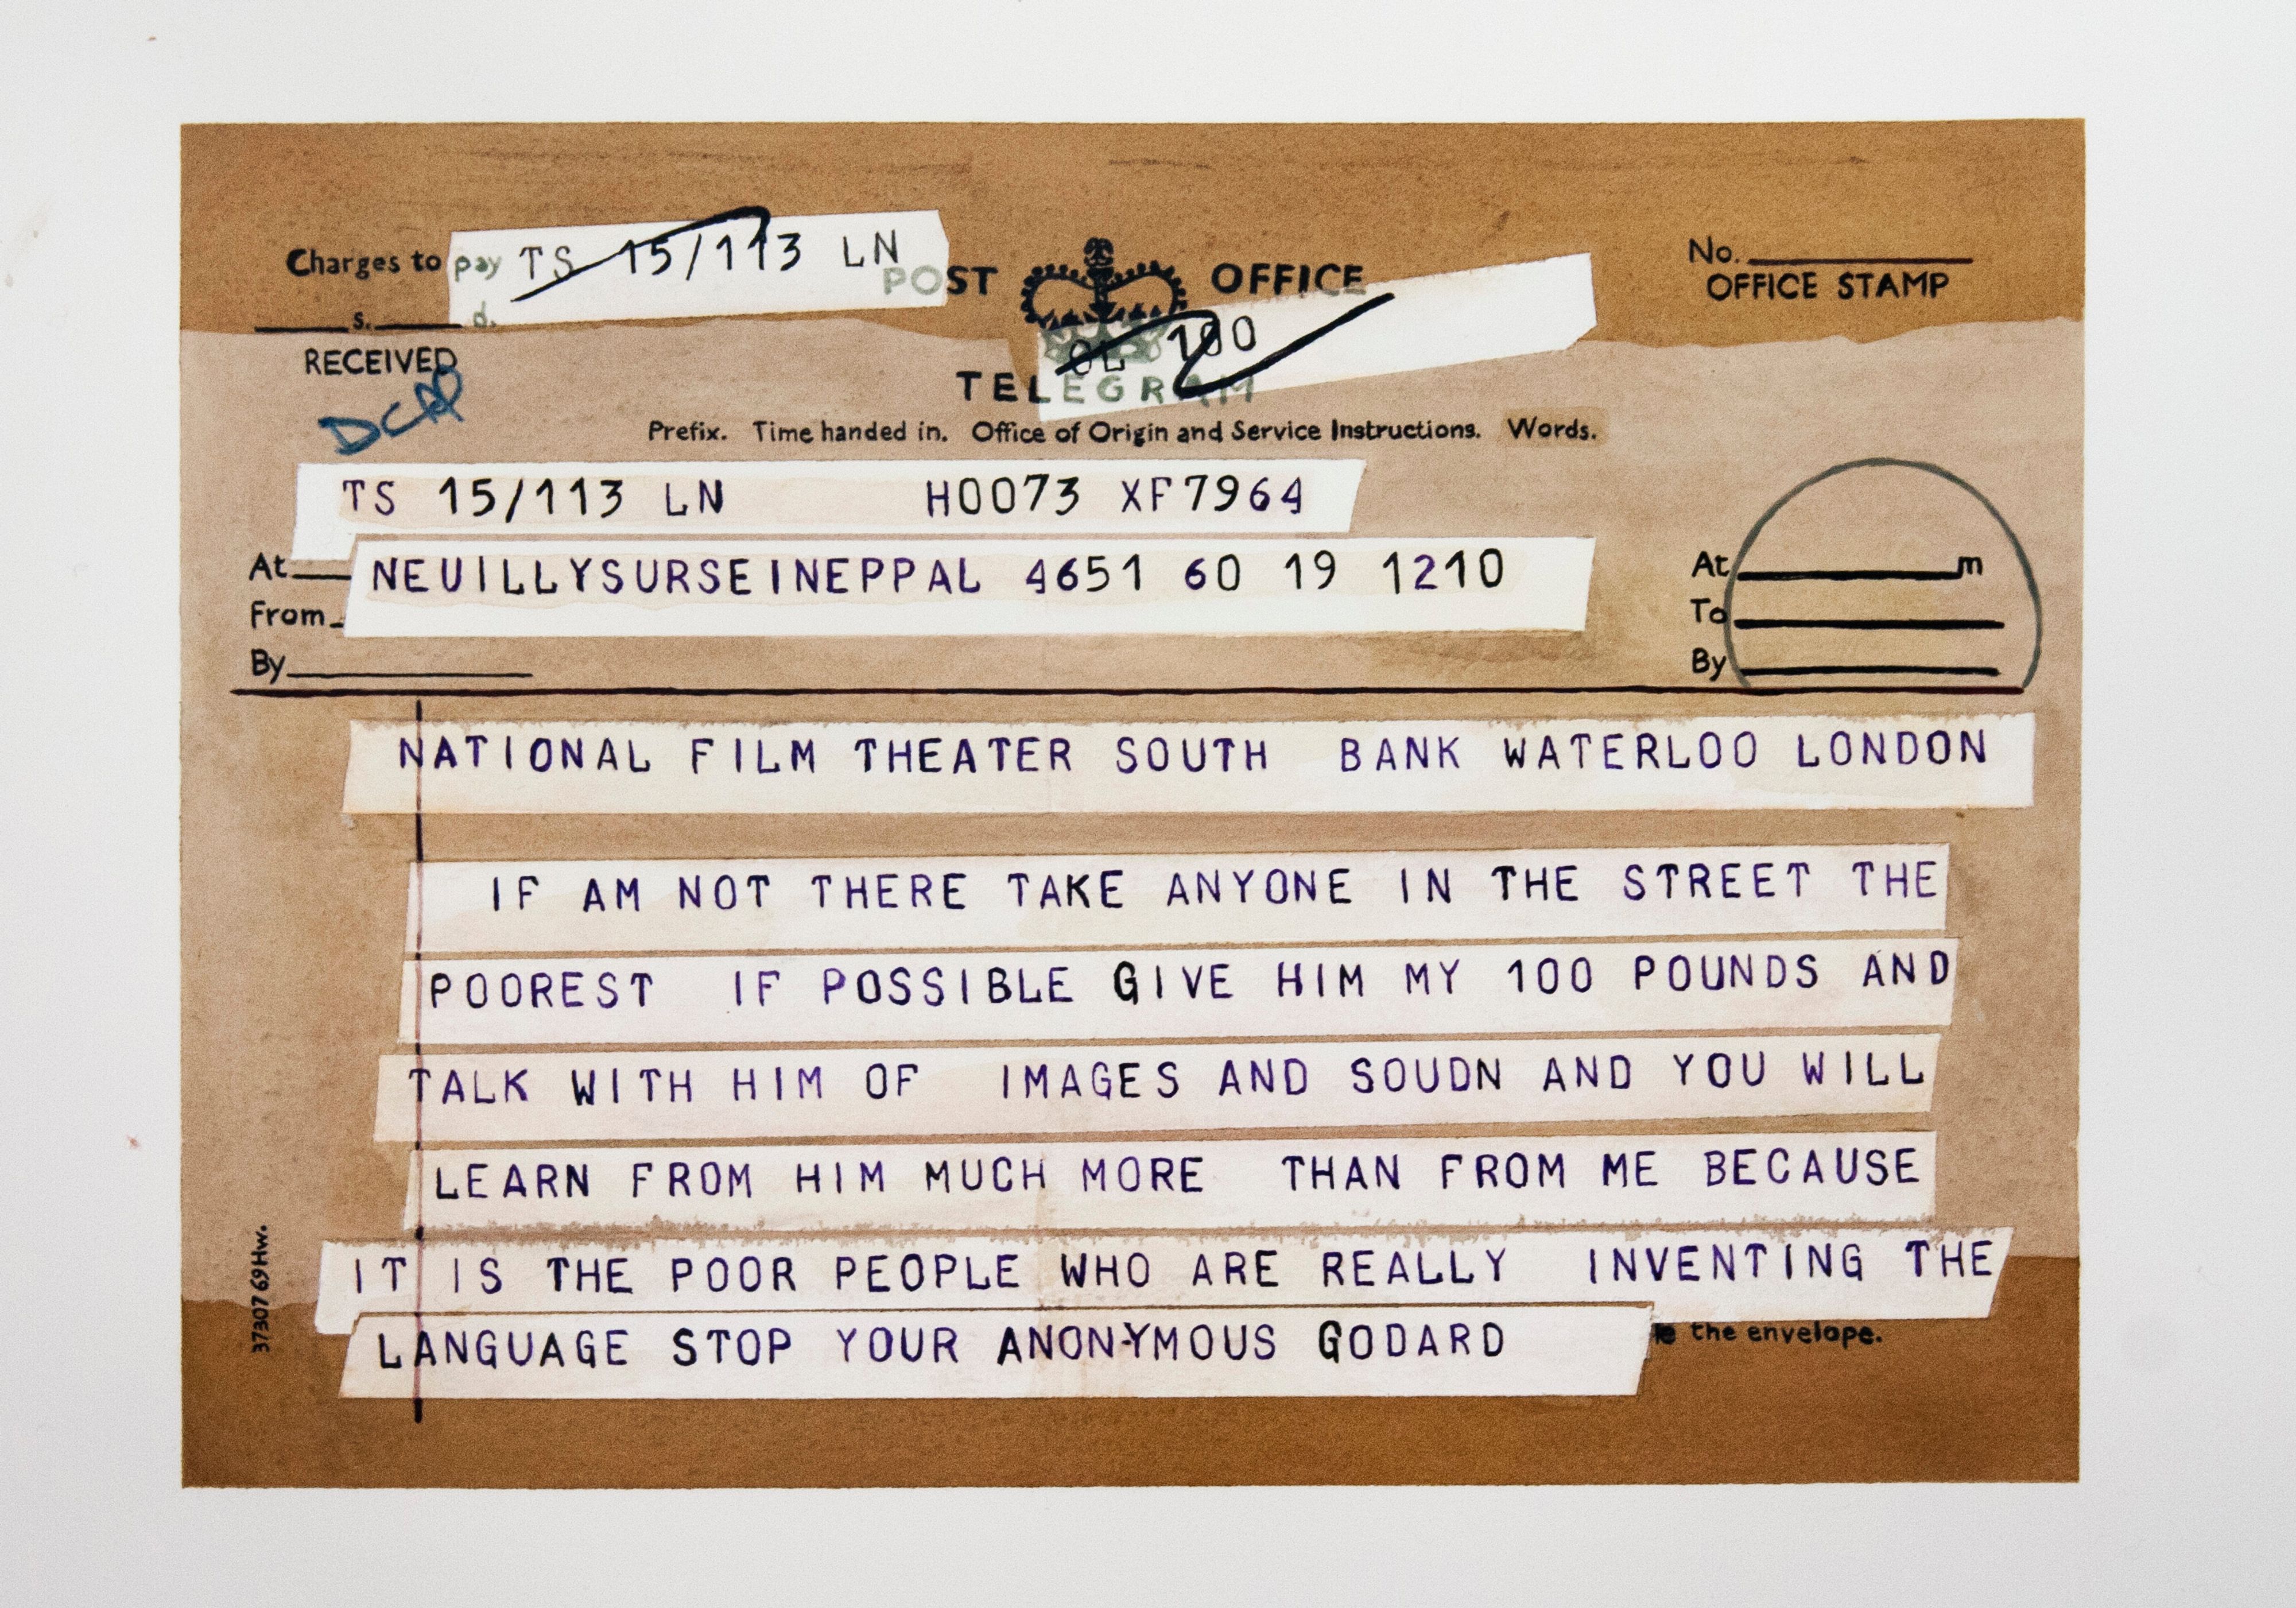 Charges to pay TS 15/113 LN
s. d.
POST OFFICE
No.
OFFICE STAMP
OL 100
RECEIVED
TELEGRAM
Prefix. Time handed in. Office of Origin and Service Instructions. Words.
TS 15/113 LN H0073 XF7964
At NEUILLYSURSEINEPPAL 4651 60 19 1210
From
By
At m
To
By
NATIONAL FILM THEATER SOUTH BANK WATERLOO LONDON
IF AM NOT THERE TAKE ANYONE IN THE STREET THE
POOREST IF POSSIBLE GIVE HIM MY 100 POUNDS AND
TALK WITH HIM OF IMAGES AND SOUDN AND YOU WILL
LEARN FROM HIM MUCH MORE THAN FROM ME BECAUSE
IT IS THE POOR PEOPLE WHO ARE REALLY INVENTING THE
LANGUAGE STOP YOUR ANONYMOUS GODARD
the envelope.
37307 69Hw.